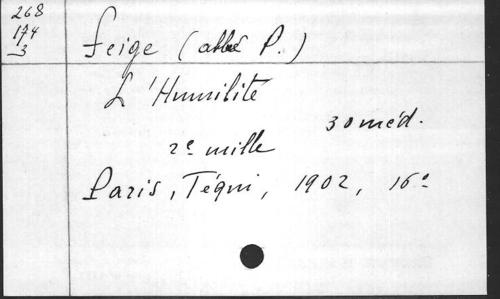 268
174
3
Feige (abbé P.)
L'Humilité
30 méd.
2e mille
Paris, Téqui, 1902, 16°